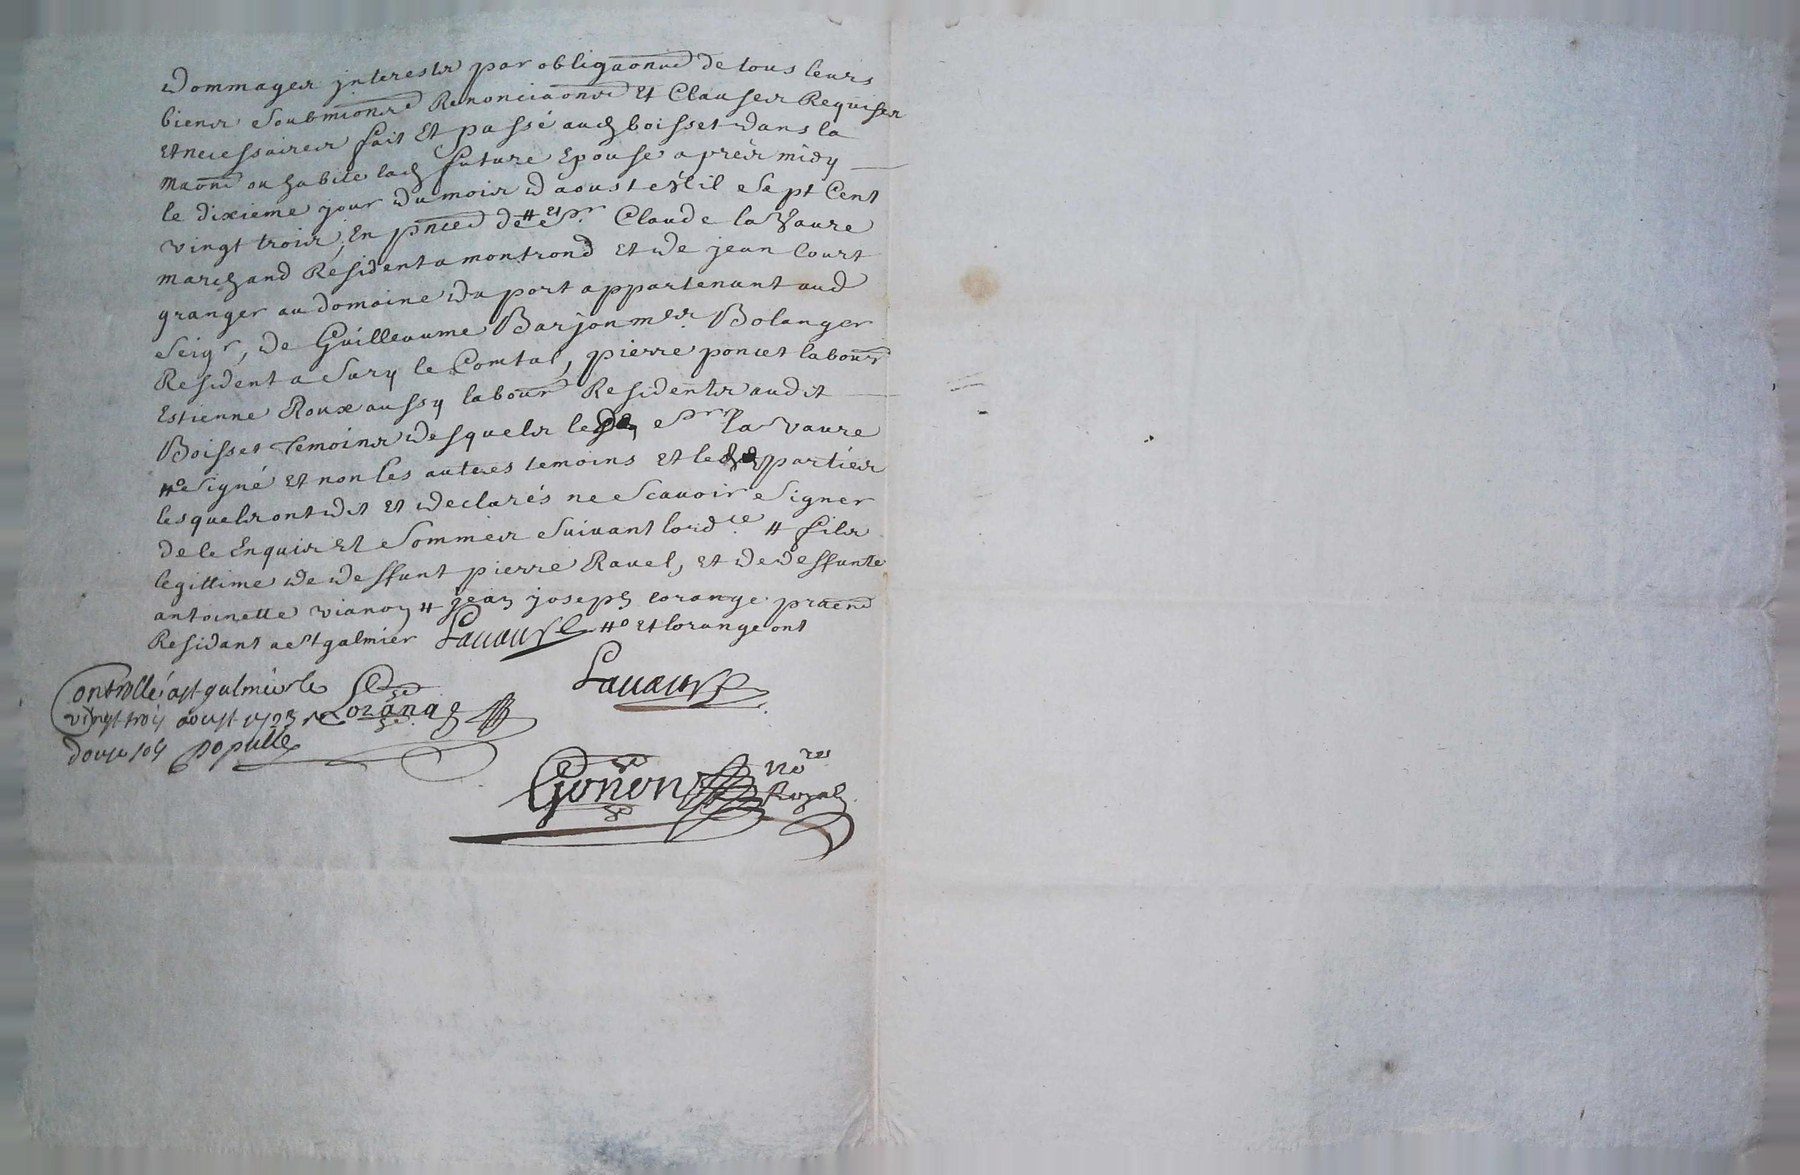 dommages jnterests par obligaonns de tous leurs
biens soubmions Renonciaons Et Clauses Requises
Et necessaires fait Et passé aud boisset dans la
maōn ou habite lad future Epouse apres midy
le dixieme jour du mois d aoust mil sept Cent
vingt trois, En pnce de # et Sr Claude la Vaure
marchand Resident a montrond et de jean Court
granger au domaine du port appartenant aud
seigr, de Guilleaume Barjon mer Bolanger
Resident a Sury le Comtal, pierre poncet labour
Estienne Roux aussy labour Residents audit
Boisset temoins desquels led Sr la Vaure
#o signé et non les autres temoins et les parties
lesquels ont dit et declarés ne scavoir signer
de le Enquis Et sommes suivant lordce # fils
legittime de deffunt pierre Ravel, et de deffunte
antoinette vianoy # jean joseph lorange praend
Residant a st galmier Lauaure #o Et lorange ont
Controllé a st galmier le
vingt trois aoust 1723 R
douze sols Populle
Lorange
Lauaure
Gonon Nore
Royal